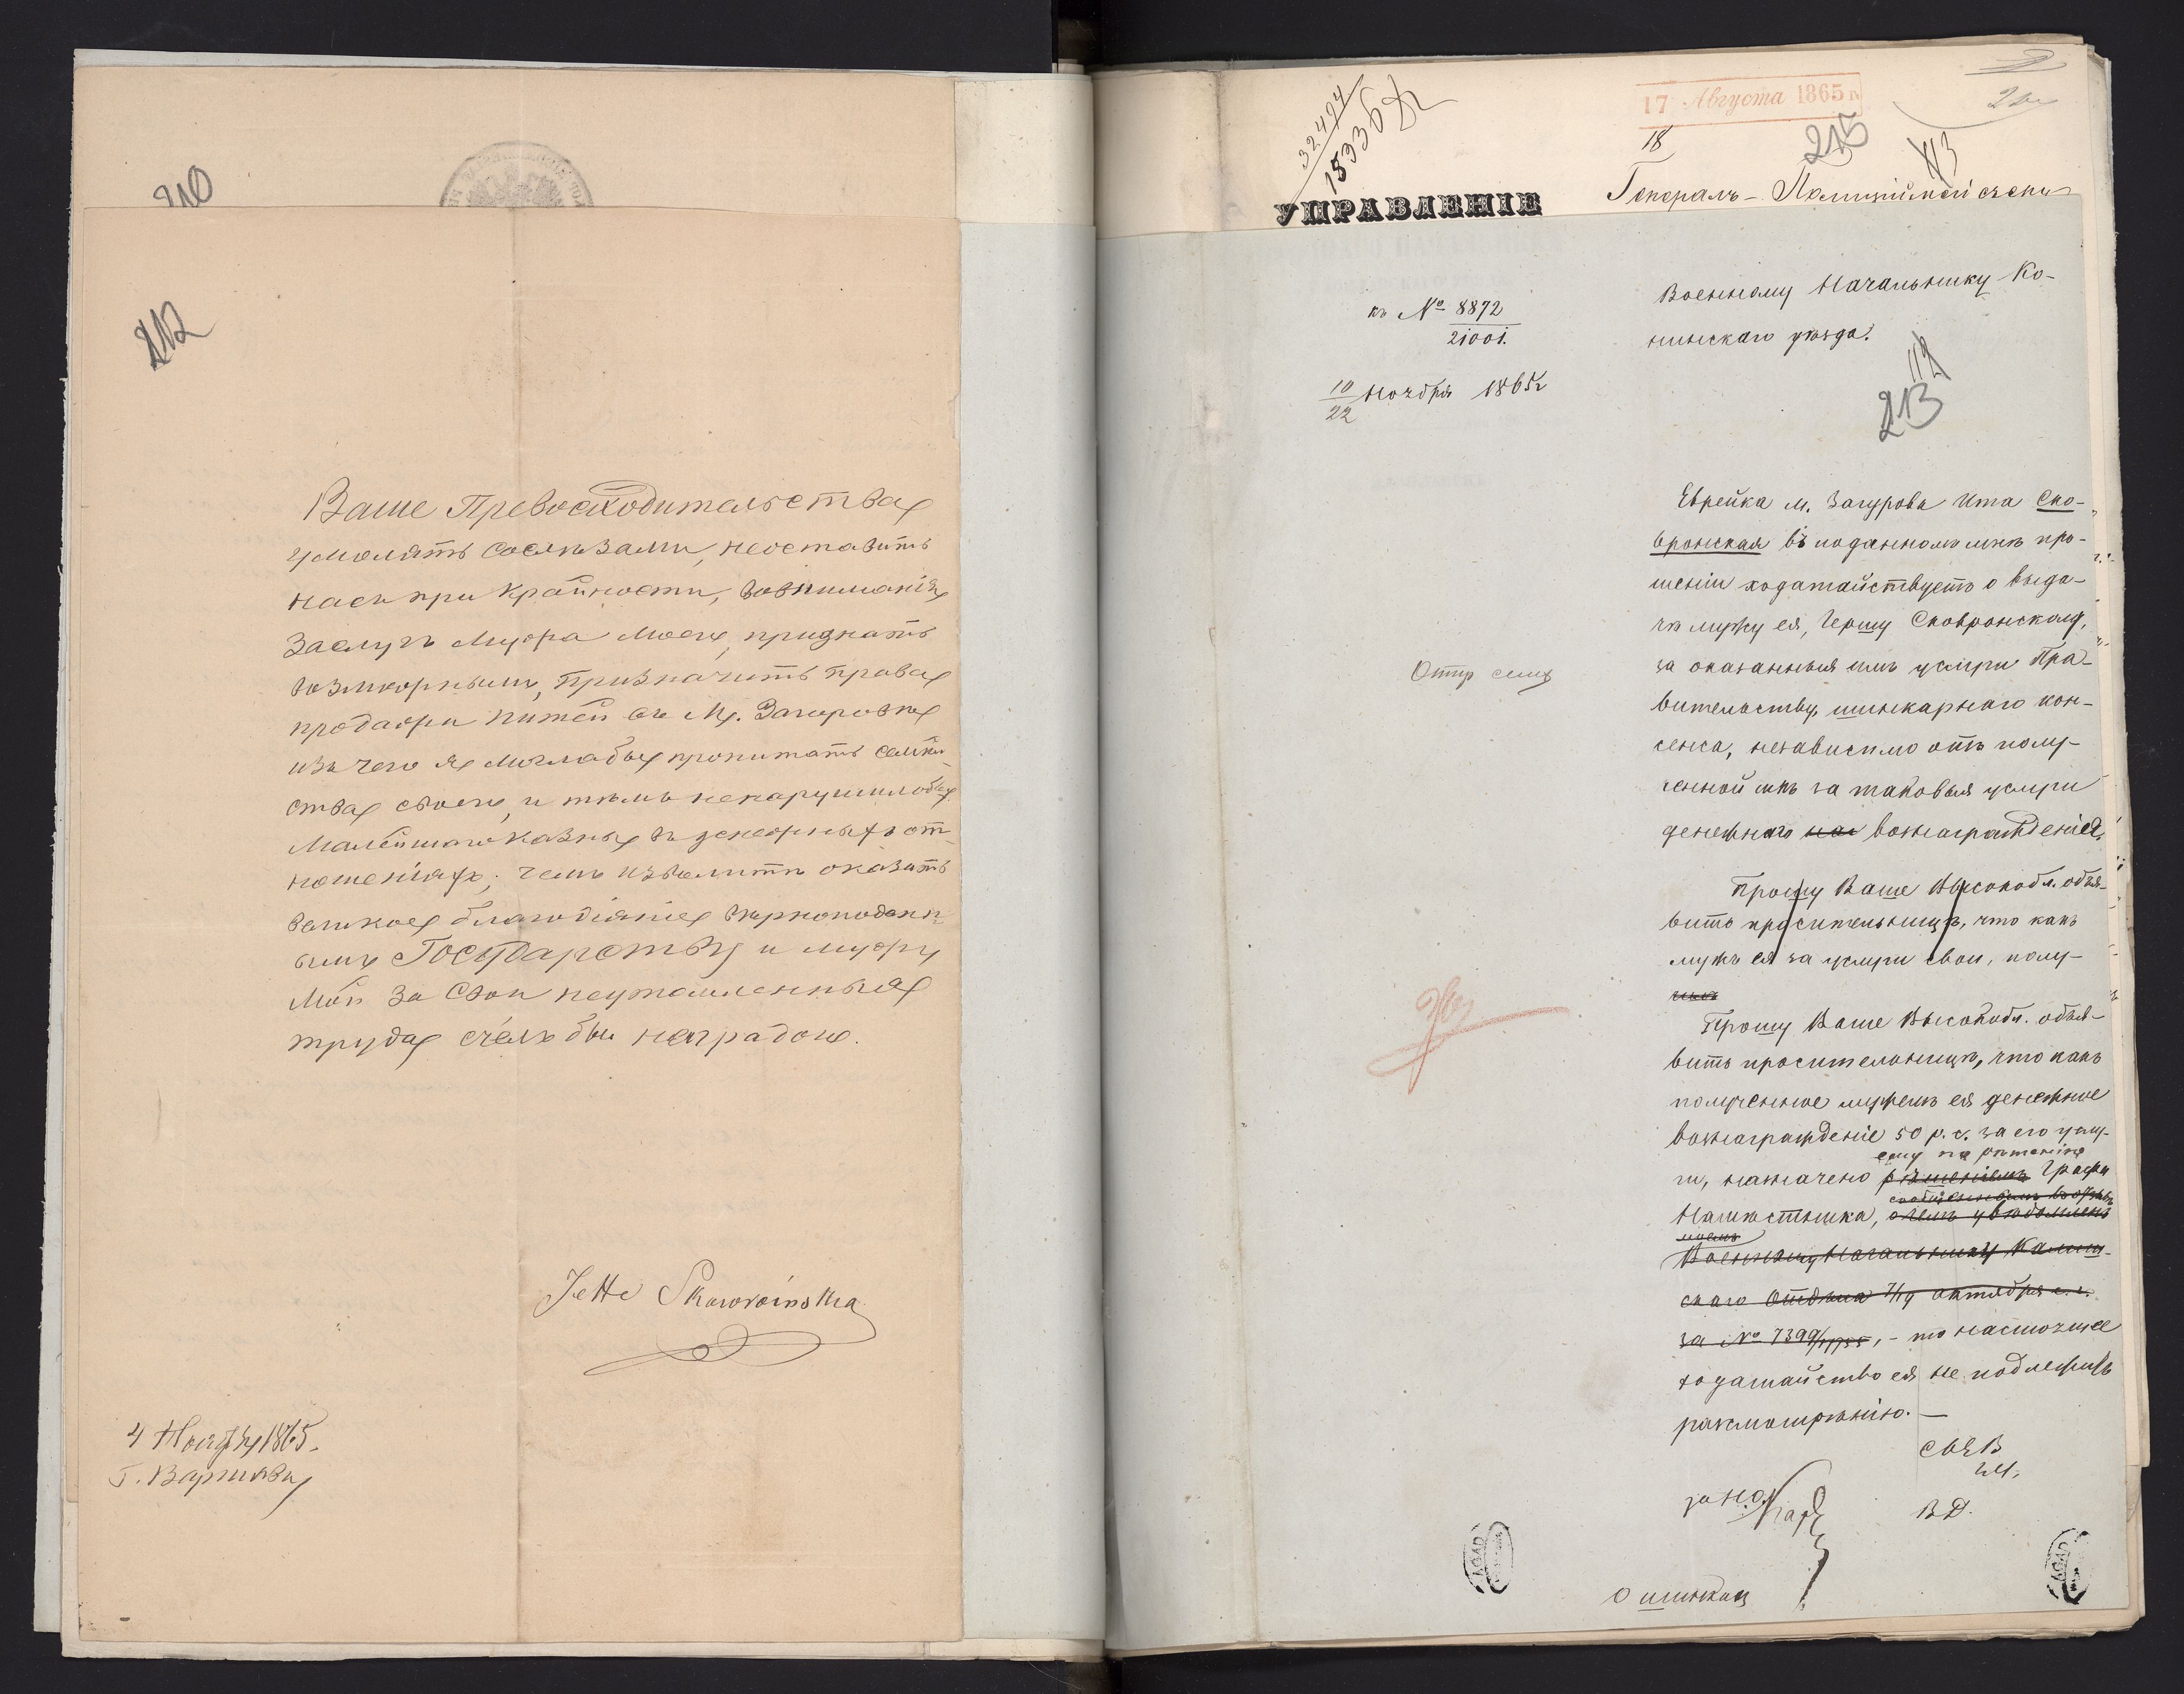 210
212
Ваше Превосходительства
умолять сослезами, неоставить
насъ при крайности, вовниманія
заслугъ мужа моего, признать
возможнымъ, призначить права
продажи питей въ М. Загоровне
изъ чего я моглабы пропитать семѣй-
ства своего, и тѣмъ ненарушилобы
малейшаго казны въ денежныхъ от-
ношеніяхъ; чемъ изволитъ оказать
великое благодіяніе вѣрноподанн-
ымъ Государству и мужу
мой за свои неутомленныя
труда счелъ бы наградою.
Jette Skowrońska
4 Ноября 1865.
Г. Варшава
32494
15336
17 Августа 1865 г.
18
215
113
УПРАВЛЕНІЕ
Генералъ-Полицiймейстеръ
къ № 8872
21001.
10
22 Ноября 1865 г
Военному Начальнику Ко-
нинскаго уѣзда.
112
213
Еврейка м. Загурова Ита Ско-
вронская въ поданномъ мнѣ про-
шеніи ходатайствуетъ о выда-
чѣ мужу ея, Гершу Сковронскому,
за оказанныя имъ услуги Пра-
вительству, шинкарнаго кон-
сенса, независимо отъ полу-
ченной имъ за таковыя услуги
денежнаго вознагражденія.
Отпр
Прошу Ваше Высокобл. объя-
вить просительницѣ, что какъ
мужъ ея за услуги свои, полу-
Прошу Ваше Высокобл. объя-
вить просительницѣ, что какъ
полученное мужемъ ея денежное
вознагражденіе 50 р. с. за его услу-
ему по рѣшенію
ги, назначено рѣшеніемъ Графа
Намѣстника, о чемъ увѣдомленъ
Военному Начальнику Калиш-
скаго Отдѣла 7/19 октября с. г.
за № 7399, - то настоящее
ходатайство ея не подлежитъ
разсмотрѣнію. —
СЫЕВ
ВД.
за
AGAD
AGAD
О шинкахъ